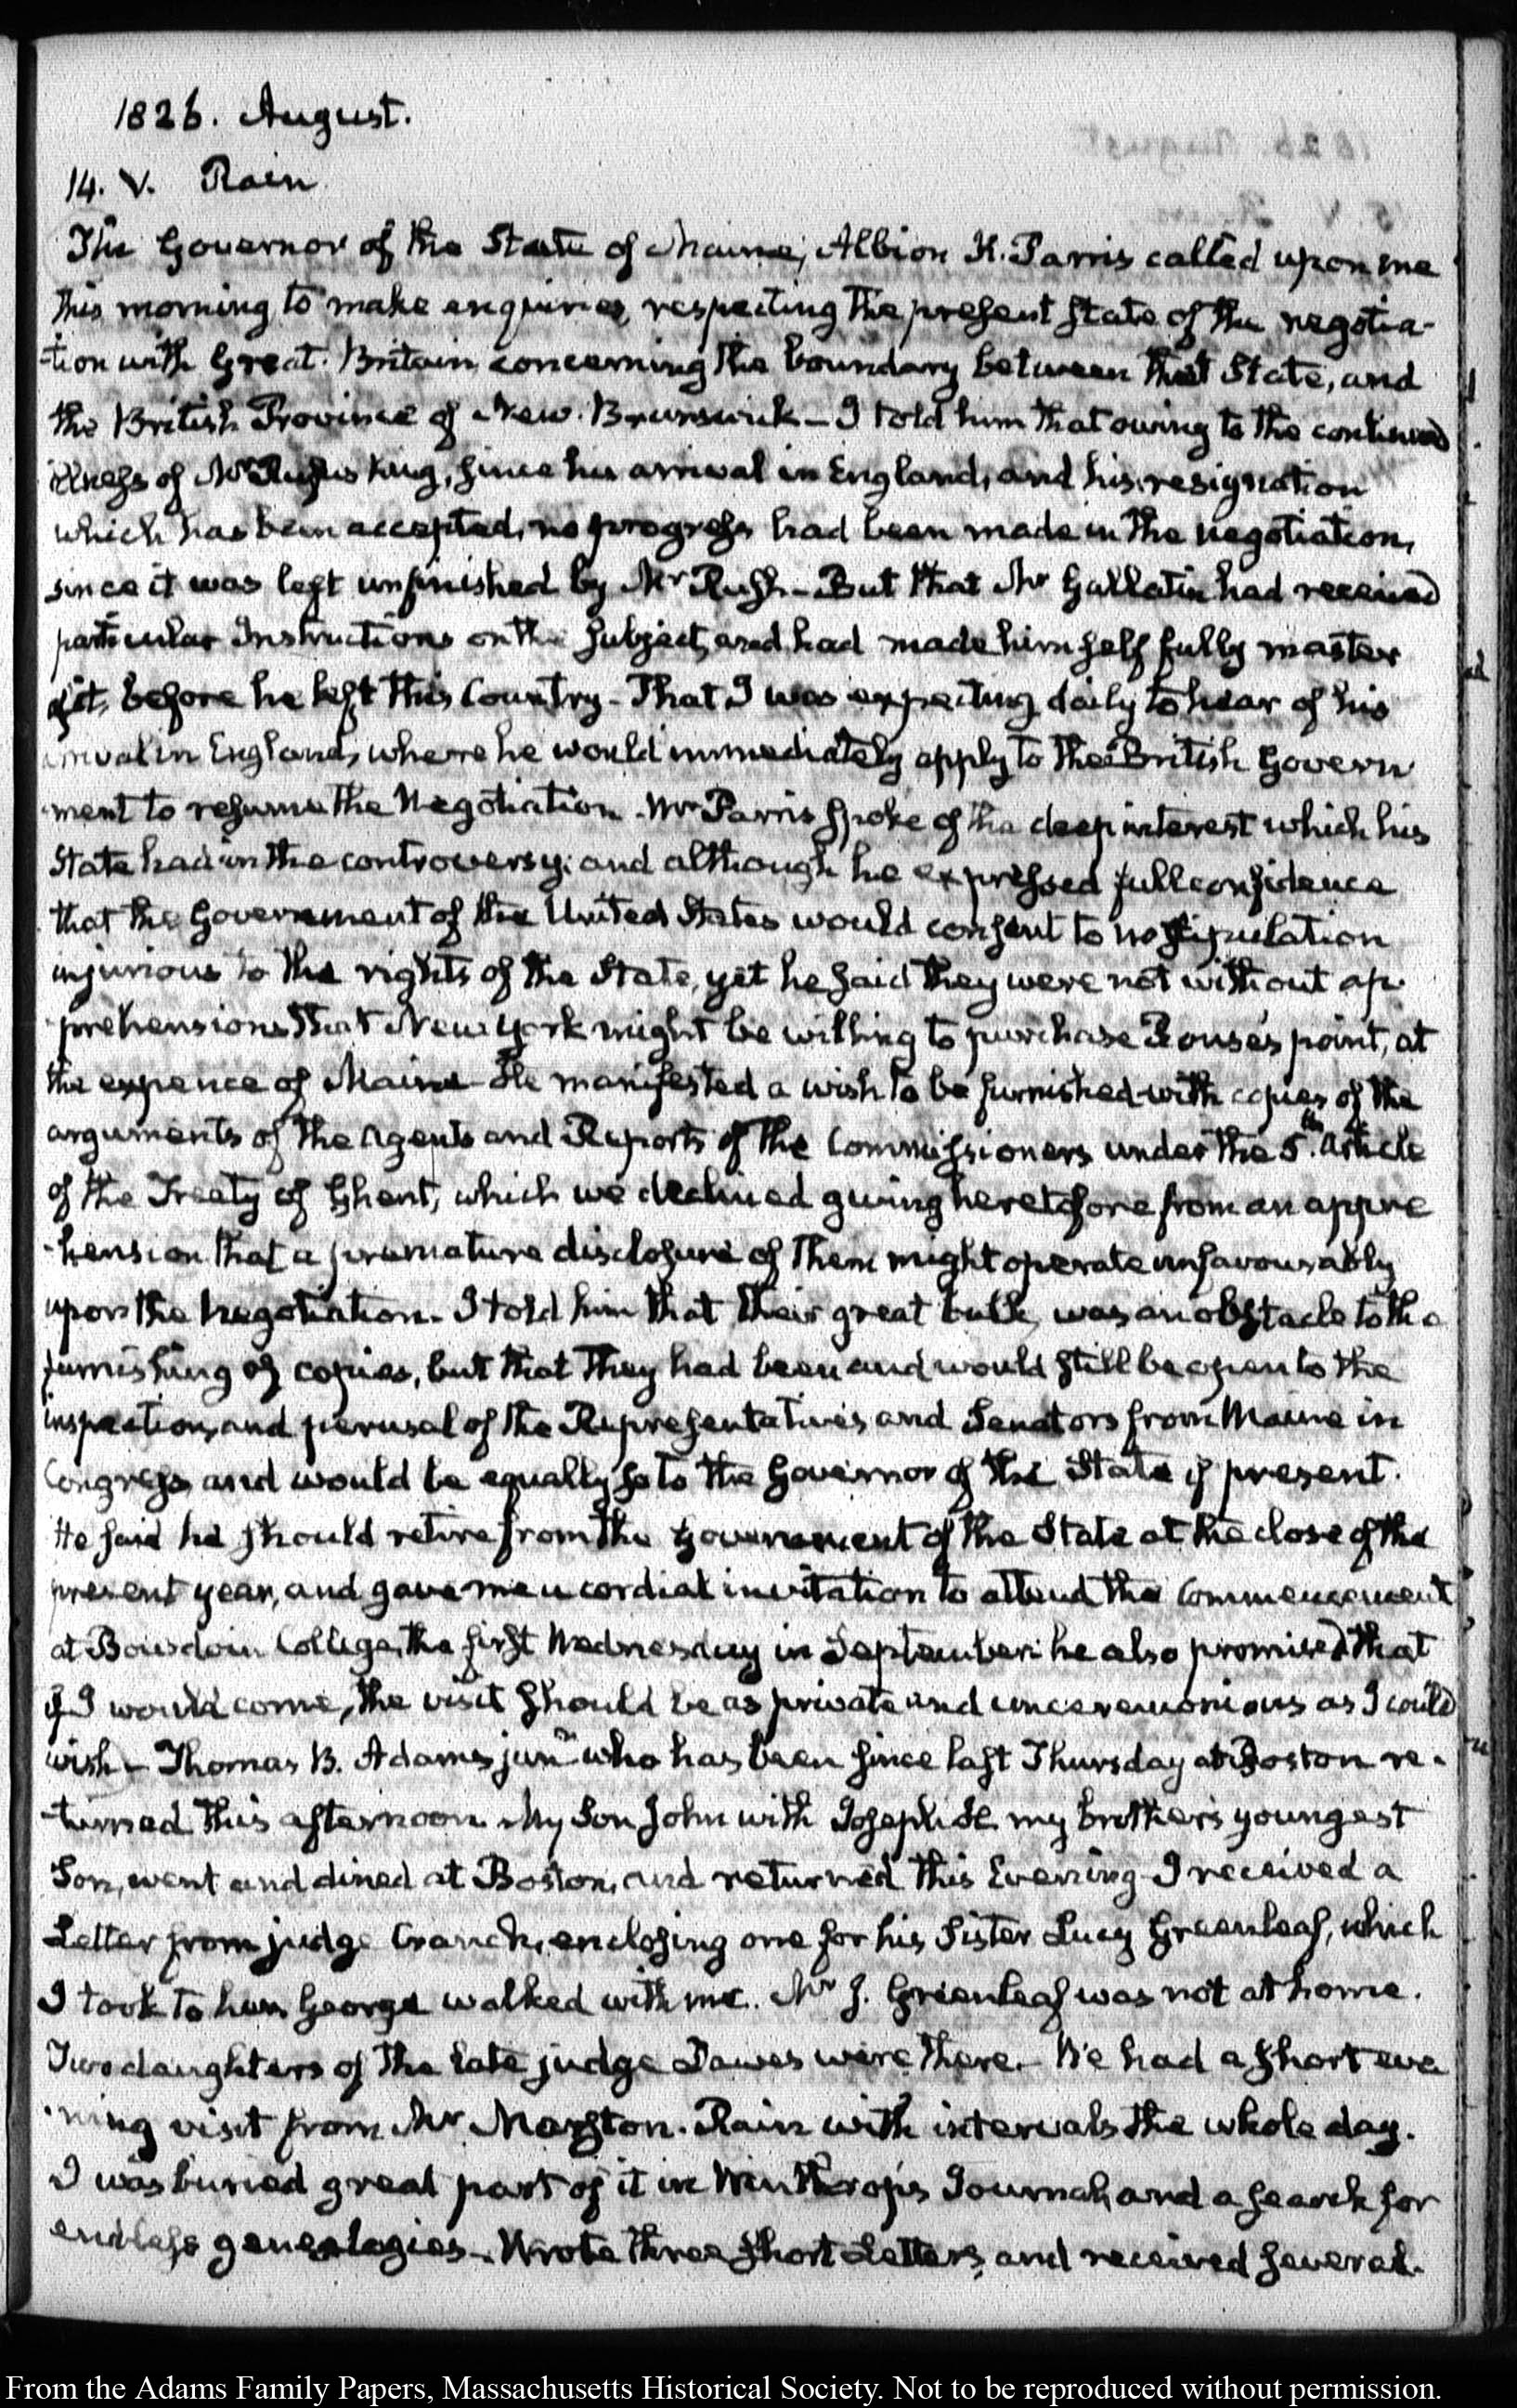 1826. August.
14. V. Rain
The Governor of the State of Maine, Albion K. Parris called upon me
this morning to make enquiries, respecting the present state of the negotia-
-tion with Great-Britain concerning the boundary between that State, and
the British Province of New-Brunswick — I told him that owing to the continued
illness of Mr Rufus King, since his arrival in England, and his resignation
which has been accepted, no progress had been made in the negotiation,
since it was left unfinished by Mr Rush — But that Mr Gallatin had received
particular Instructions on the subject, and had made himself fully master
of it, before he left this Country — That I was expecting daily to hear of his
arrival in England, where he would immediately apply to the British Govern
-ment to resume the Negotiation. Mr Parris spoke of the deep interest which his
State had in the controversy; and although he expressed full confidence
that the Government of the United States would consent to no stipulation
injurious to the rights of the State, yet he said they were not without ap-
-prehensions that New York might be willing to purchase Rouse's point, at
the expence of Maine — He manifested a wish to be furnished with copies of the
arguments of the Agents and Reports of the Commissioners under the 5th. Article
of the Treaty of Ghent, which we declined giving heretofore from an appre
-hension that a premature disclosure of them might operate unfavourably
upon the negotiation. I told him that their great bulk, was an obstacle to the
furnishing of copies, but that they had been and would still be open to the
inspection, and perusal of the Representatives and Senators from Maine in
Congress and would be equally so to the Governor of the State if present.
He said he should retire from the Government of the State at the close of the
present year, and gave me a cordial invitation to attend the Commencement
at Bowdoin College, the first Wednesday in September: he also promised that
if I would come, the visit should be as private and unceremonious as I could
wish — Thomas B. Adams junr who has been since last Thursday at Boston re-
-turned this afternoon. My Son John with Joseph H. my brother's youngest
Son, went and dined at Boston, and returned this Evening — I received a
Letter from judge Cranch, enclosing one for his Sister Lucy Greenleaf, which
I took to her. George walked with me. Mr J. Greenleaf was not at home.
Two daughters of the late judge Dawes were there. We had a short eve
-ning visit from Mr Marston. Rain with intervals the whole day.
I was buried great part of it in Winthrop's Journal, and a search for
endless genealogies. Wrote three short Letters, and received several.
From the Adams Family Papers, Massachusetts Historical Society. Not to be reproduced without permission.